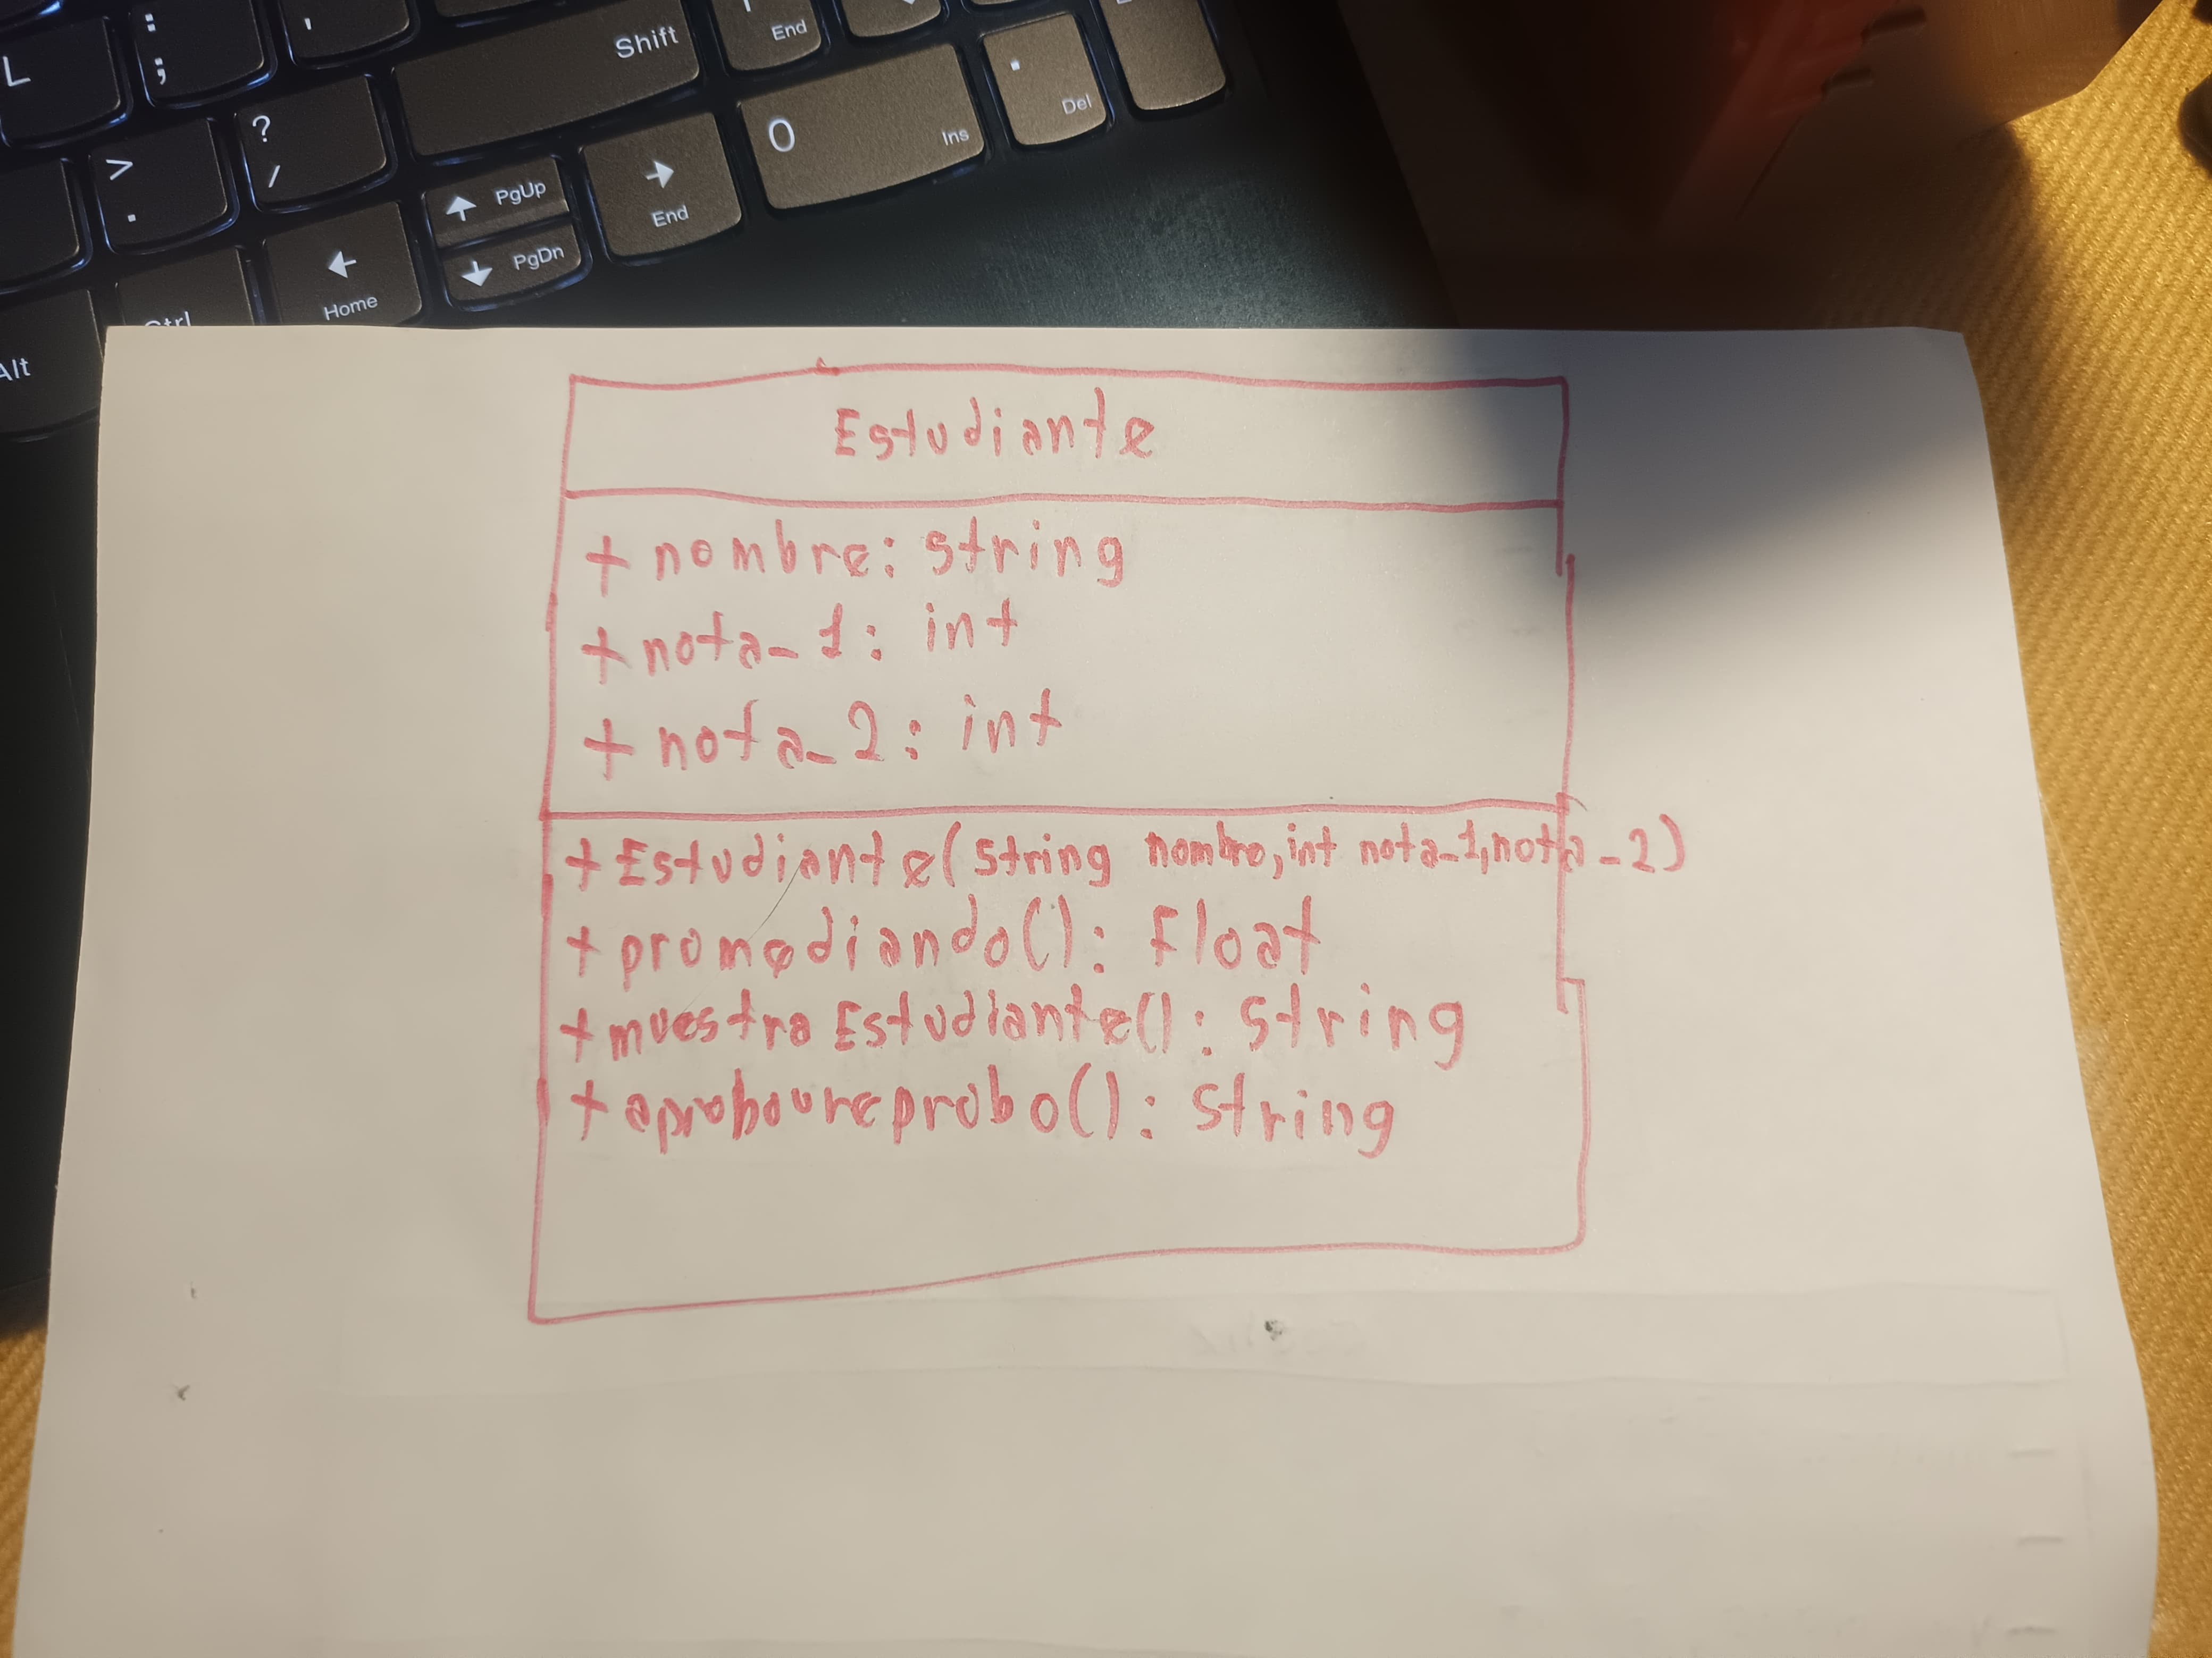 L
:
;
'
Shift
End
>
.
?
/
PgUp
PgDn
End
0
Ins
.
Del
Home
Ctrl
Alt
Estudiante
+ nombre: string
+ nota_1: int
+ nota_2: int
+ Estudiante(string nombre, int nota_1, nota_2)
+ promediando(): Float
+ muestraEstudiante(): string
+ aproboureprobo(): string